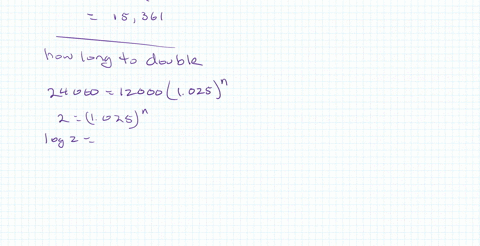 = 15,361
how long to double
24000 = 12000(1.025)^n
2 = (1.025)^n
log 2 =